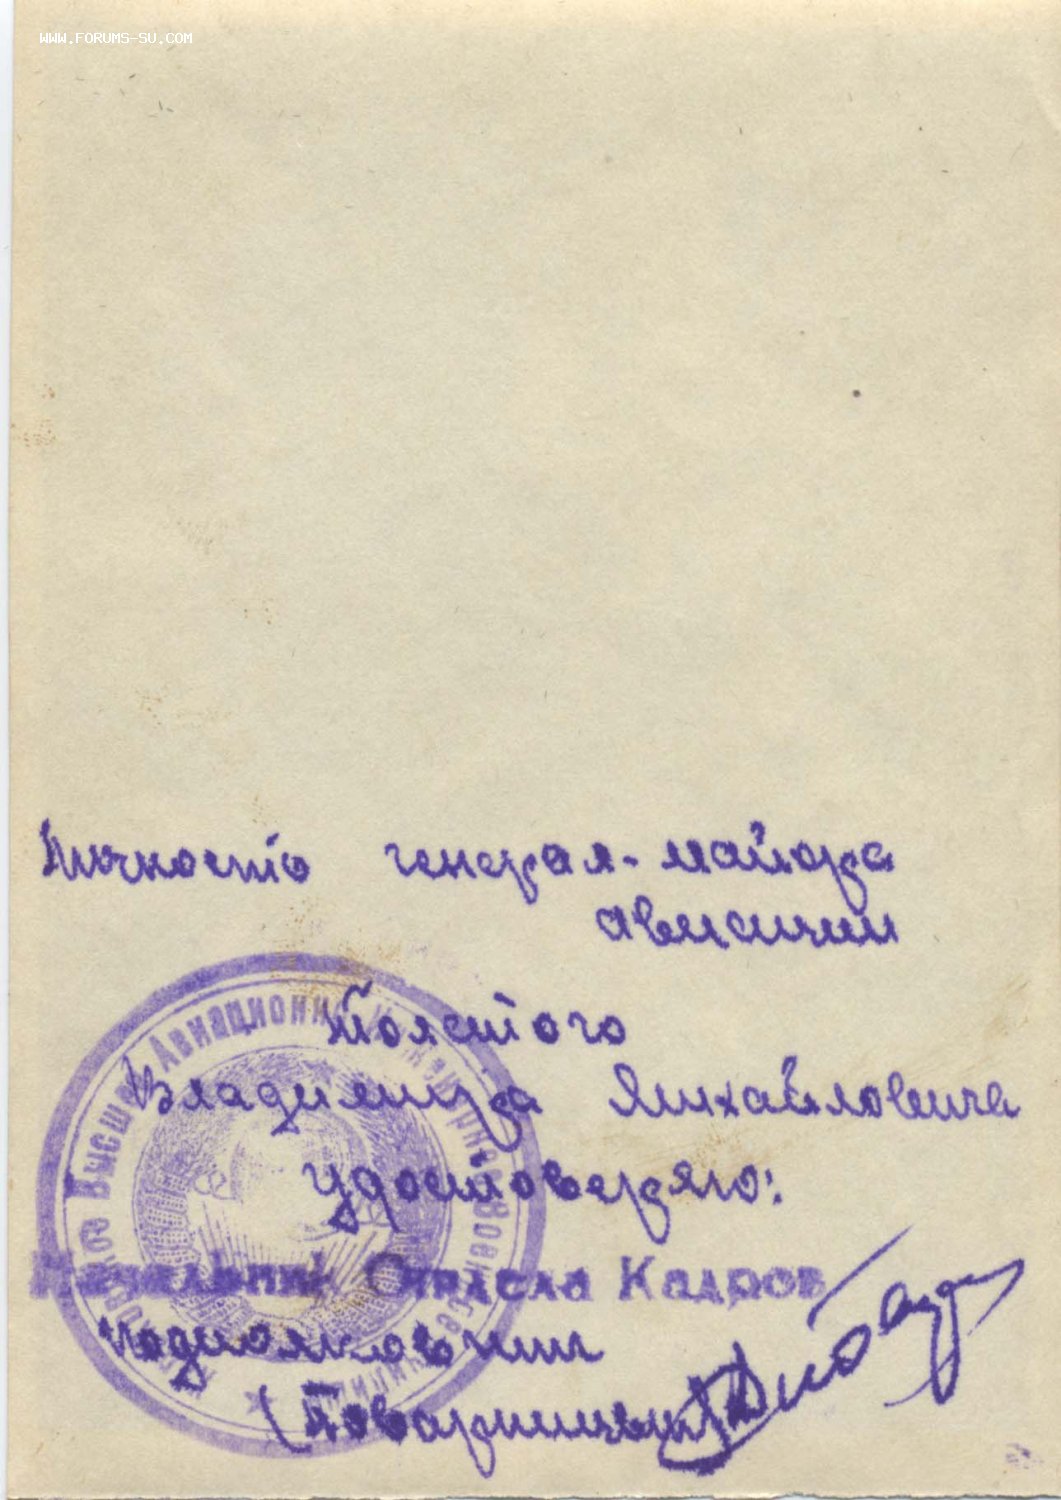 WWW.FORUMS-SU.COM
Личность генерал-майора
авиации
Толстого
Владимира Михайловича
удостоверяю:
Начальник Отдела Кадров
подполковник
Высшее Авиационное Инженерное Военное